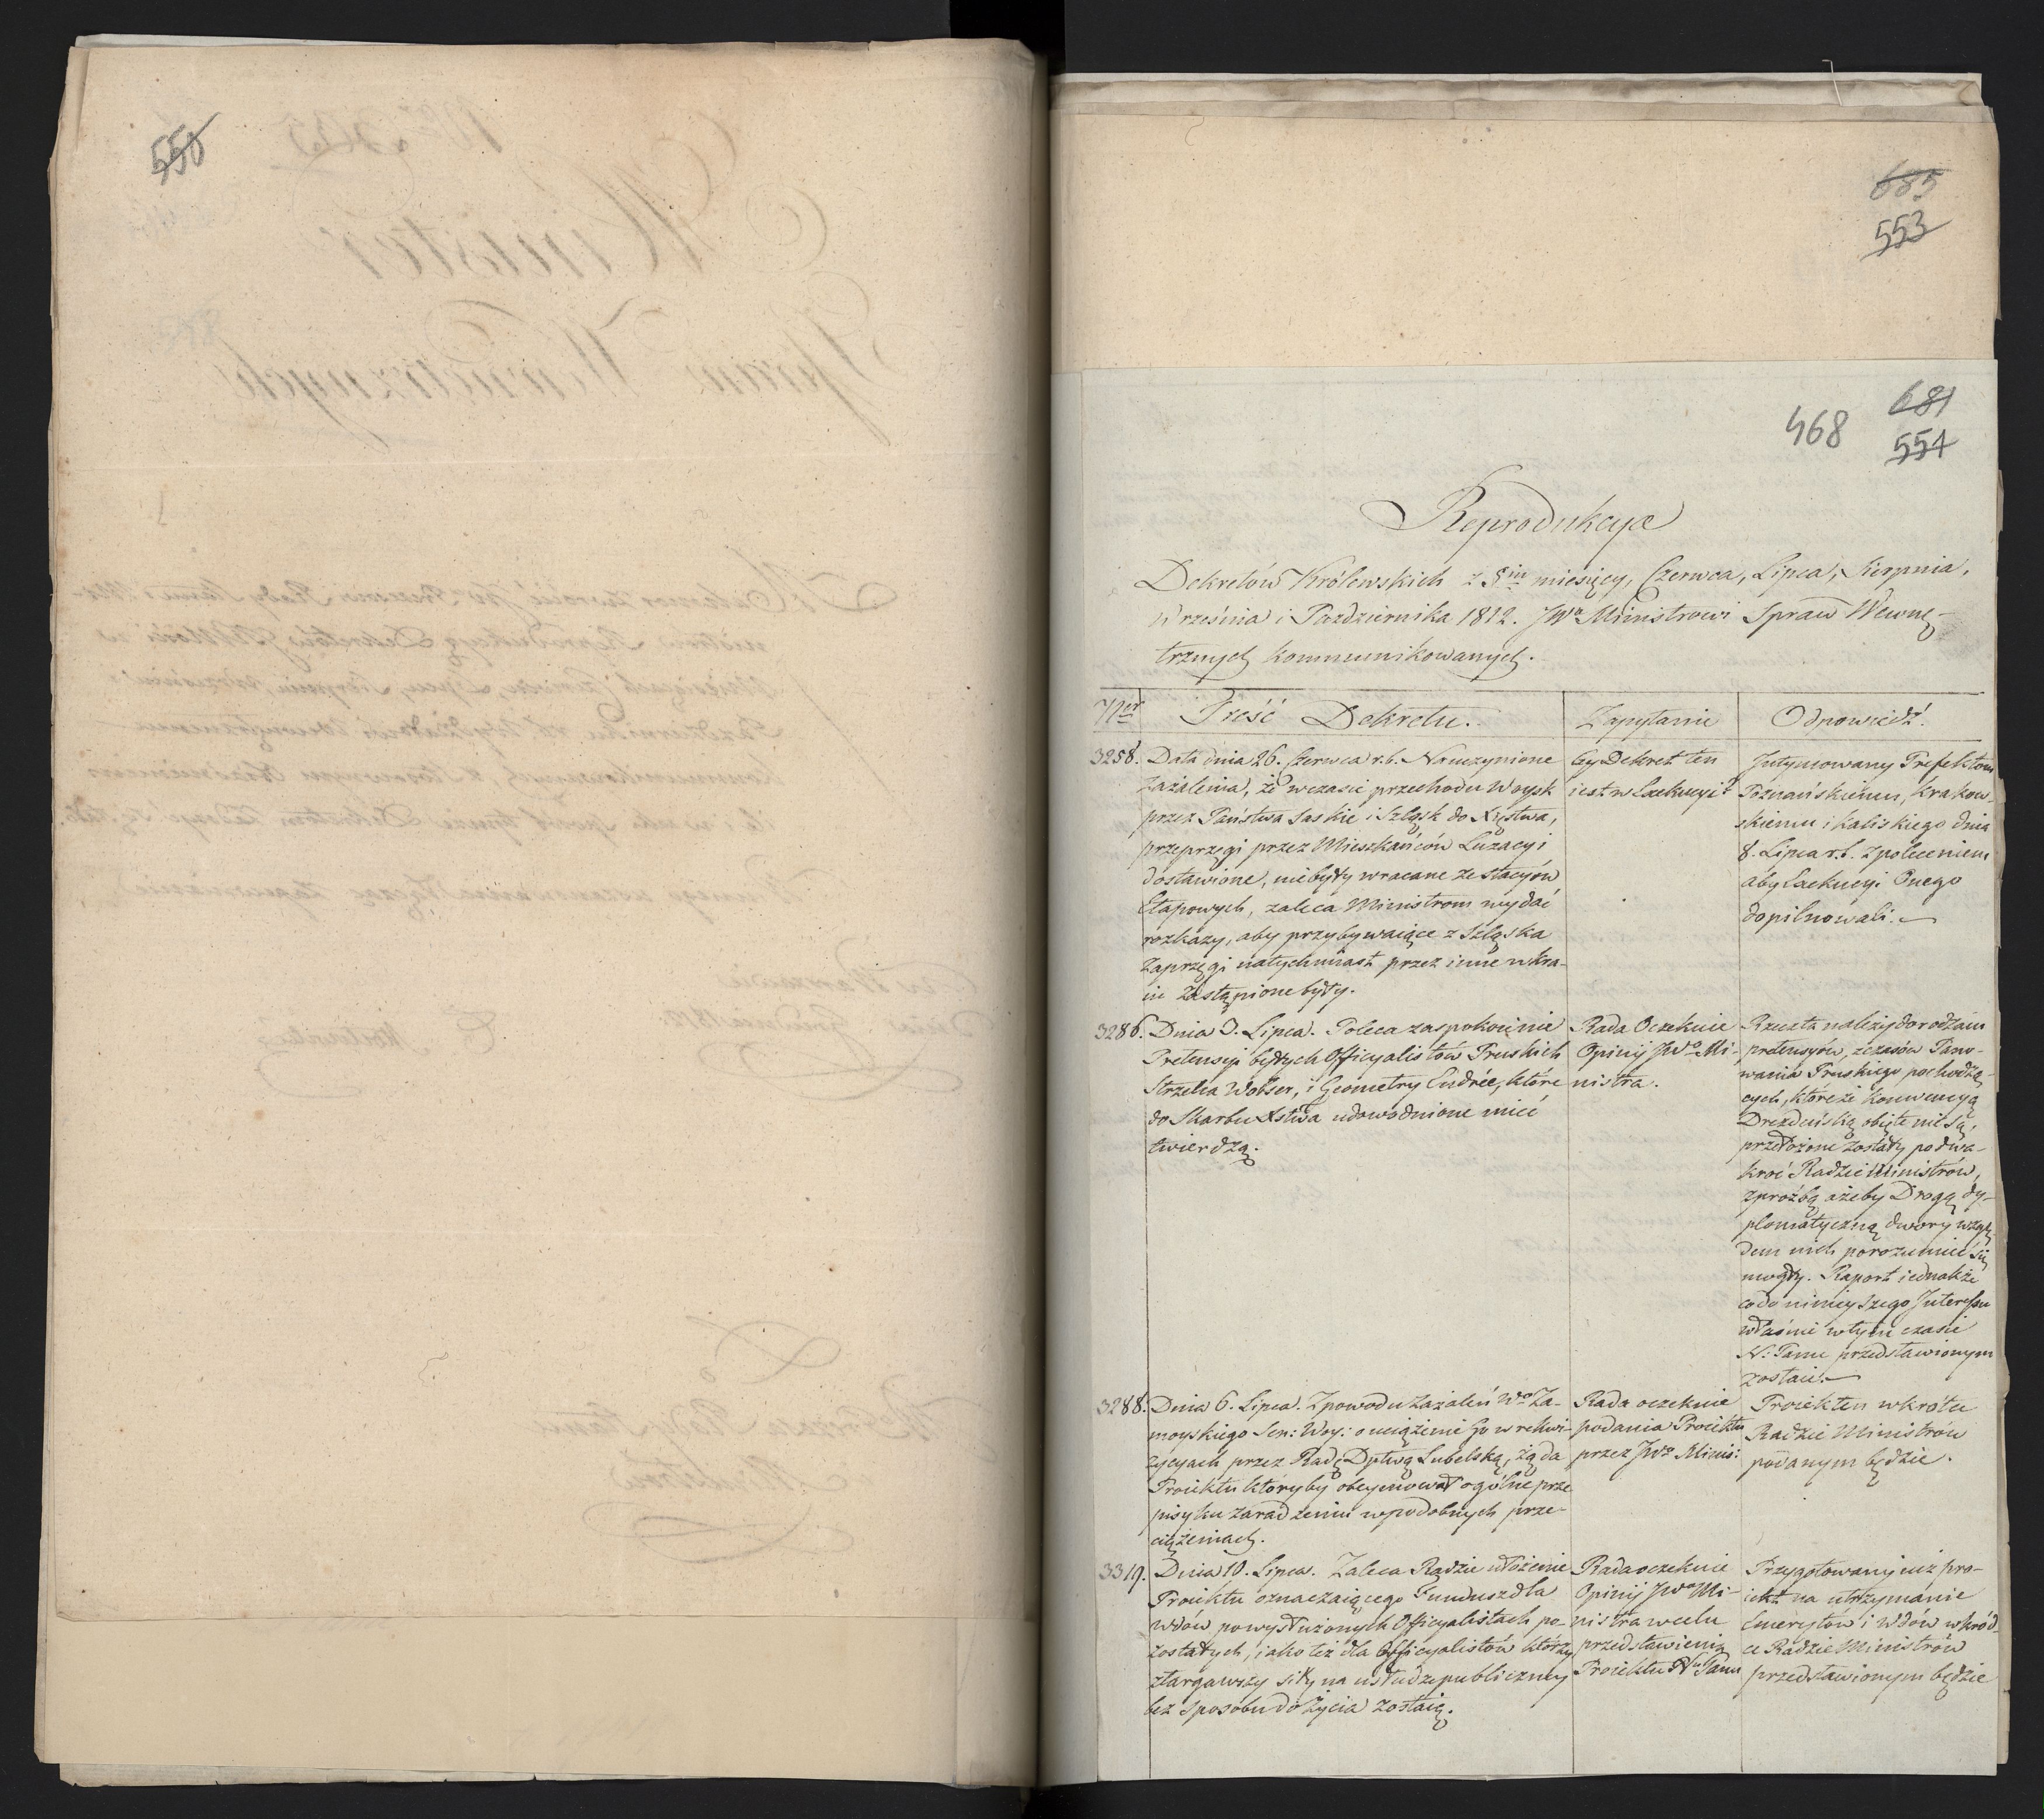 550
685
553
468
681
554
Reprodukcya
Dekretów Królewskich z 5ciu miesięcy, Czerwca, Lipca, Sierpnia,
Września i Pazdziernika 1812. JWo Ministrowi Spraw Wewnę-
trznych kommunikowanych.
Ner
Treść Dekretu.
Zapytanie
Odpowiedź.
3258. Data dnia 26. Czerwca r.b. Na uczynione
zażalenia, że wczasie przechodu Woysk
przez Państwa Saskie i Szląsk do Xięstwa,
przeprzęgi przez Mieszkańców Luzacyi
dostawione, niebyły wracane ze stacyów
Etapowych, zaleca Ministrom wydać
rozkazy, aby przybywaiące z Szląska
Zaprzęgi natychmiast przez inne w Kra-
iu zastąpione były.
Czy Dekret ten
iest w Exekucyi?
Intymowany Prefektom
Poznańskiemu, Krakow-
skiemu i Kaliskiego dnia
8. Lipca r.b. z poleceniem
aby Exekucyi Onego
dopilnowali.
3286. Dnia 3. Lipca. Poleca zaspokoienie
Pretensyi byłych Officyalistów Pruskich
Strzelca Wobser, i Geometry Endrée, które
do Skarbu Xstwa udowodnione mieć
twierdzą.
Rada Oczekuie
Opinij JWo Mi-
nistra.
Rzecz ta należy do rodzaiu
pretensyów, z czasów Pano-
wania Pruskiego pochodzą-
cych, które że Konwencyą
Drezdeńską obięte nie są,
przełożone zostały po dwa-
kroć Radzie Ministrów,
z proźbą ażeby Drogą dy-
plomatyczną dwory wzglę-
dem nich porozumieć się
mogły. Raport iednakże
co do ninieyszego Interessu
właśnie w tym czasie
N: Panu przedstawionym
zostaie.
3288. Dnia 6. Lipca. Z powodu Zażaleń Wo Za-
moyskiego Sen: Woy: o uciążenie Go w rekwi-
zycyach przez Radę Dptwą Lubelską, żąda
Proiektu któryby obeymował ogólne prze
pisy ku zaradzeniu w podobnych prze-
ciążeniach.
Rada oczekuie
podania Proiektu
przez JWo Minis:
Proiekt ten wkrótce
Radzie Ministrów
podanym będzie.
3319. Dnia 10. Lipca. Zaleca Radzie ułożenie
Proiektu oznaczaiącego Fundusz dla
Wdów po wysłużonych Officyalistach po-
zostałych, iako też dla Officyalistów którzy
ztargawszy siły na usłudze publiczney
bez sposobu do życia zostaią.
Rada oczekuie
Opinij JWo Mi-
nistra w celu
przedstawienia
Proiektu N. Panu
Przygotowany iuż pro-
iekt na utrzymanie
Emerytów i Wdów wkród-
ce Radzie Ministrów
przedstawionym będzie